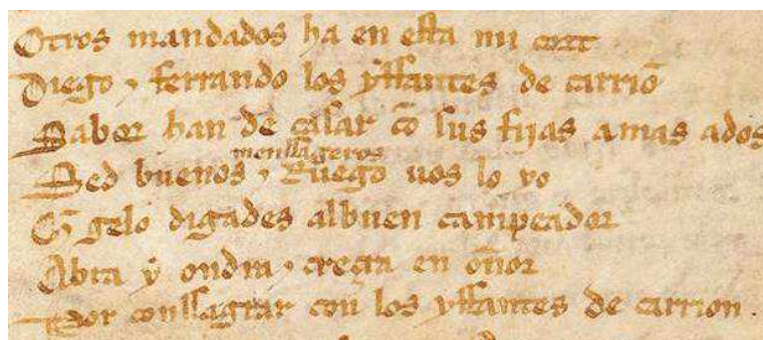 Otros mandados ha en esta mi cort
Diego ⁊ ferrando los yffantes de carriõ
Sabor han de casar cõ sus fijas amas ados
menssageros
Sed buenos ⁊ Ruego uos lo yo
Q̃ gelo digades albuen campeador
Abra y ondra ⁊ creçra en onor
Por conssagrar con los yffantes de carrion.